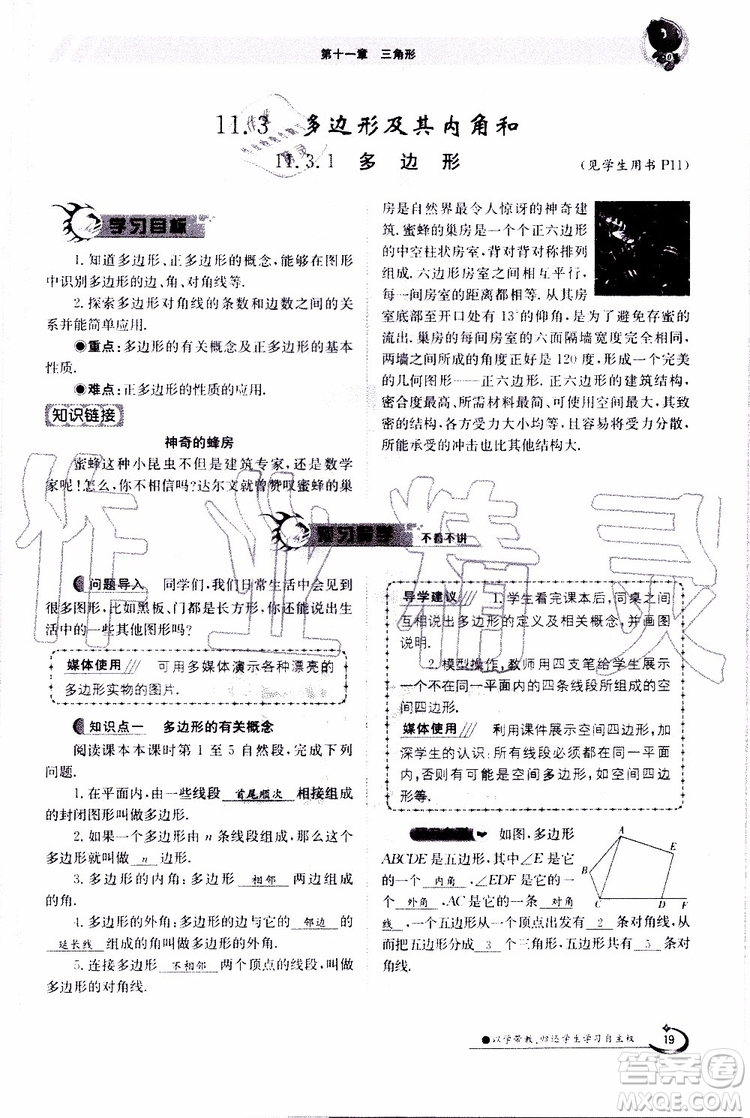 第十一章 三角形
11.3 多边形及其内角和
11.3.1 多边形
(见学生用书 P11)
学习目标
1. 知道多边形、正多边形的概念，能够在图形
中识别多边形的边、角、对角线等.
2. 探索多边形对角线的条数和边数之间的关
系并能简单应用.
●重点:多边形的有关概念及正多边形的基本
性质.
●难点:正多边形的性质的应用.
知识链接
神奇的蜂房
蜜蜂这种小昆虫不但是建筑专家，还是数学
家呢!怎么，你不相信吗?达尔文就曾赞叹蜜蜂的巢
房是自然界最令人惊讶的神奇建
筑.蜜蜂的巢房是一个个正六边形
的中空柱状房室，背对背对称排列
组成.六边形房室之间相互平行，
每一间房室的距离都相等.其房室
底部至开口处有 13°的仰角，是
为了避免存蜜的
流出.巢房的每间房室的六面隔墙宽度完全相同，
两墙之间的角度正好是 120 度，形成一个完美
的几何图形——正六边形.正六边形的建筑结构，
密合度最高、所需材料最简、可使用空间最大，
其结构致密，各方受力大小均等，且容易将受力分散，
所能承受的冲击也比其他结构大.
预习导学 不看不讲
问题导入 同学们，我们日常生活中可以看到
很多图形，比如黑板、门都是长方形，你还能说出生
活中的一些其他图形吗?
媒体使用 可用多媒体演示各种漂亮的
多边形实物的图片.
知识点一 多边形的有关概念
阅读课本本课时第 1 至 5 自然段，完成下列
问题.
1. 在平面内，由一些线段 首尾顺次 相接组成
的封闭图形叫做多边形.
2. 如果一个多边形由 n 条线段组成，那么这个多
边形就叫做 n 边形.
3. 多边形的内角:多边形 相邻 两边组成
的角.
4. 多边形的外角:多边形的边与它的 邻边 的
延长线 组成的角叫做多边形的外角.
5. 连接多边形 不相邻 两个顶点的线段，叫做
多边形的对角线.
导学建议 1. 学生看完课本后，同桌之间
互相说出多边形的定义及相关概念，并画图
说明.
2. 模型操作，教师用四支笔给学生展示
不在同一平面的四条线段所组成的
空间四边形.
媒体使用 利用课件展示空间四边形，加
深学生的认识:所有线段必须在同一平面内，
否则可能是空间多边形，如空间四边
形等.
如图，多边形
ABCDE 是五边形，其中∠E 是它的
一个 内角 ，∠EDF 是它的一
个 外角 ，AC 是它的一条 对角
线 ，五边形从一个顶点出发有 2 条对角线，从
而把五边形分成 3 个三角形，五边形共有 5 条对
角线.
A
B
E
C
D
F
●以学带教，归还学生学习自主权
19
作业精灵
答案圈
MXQE.COM